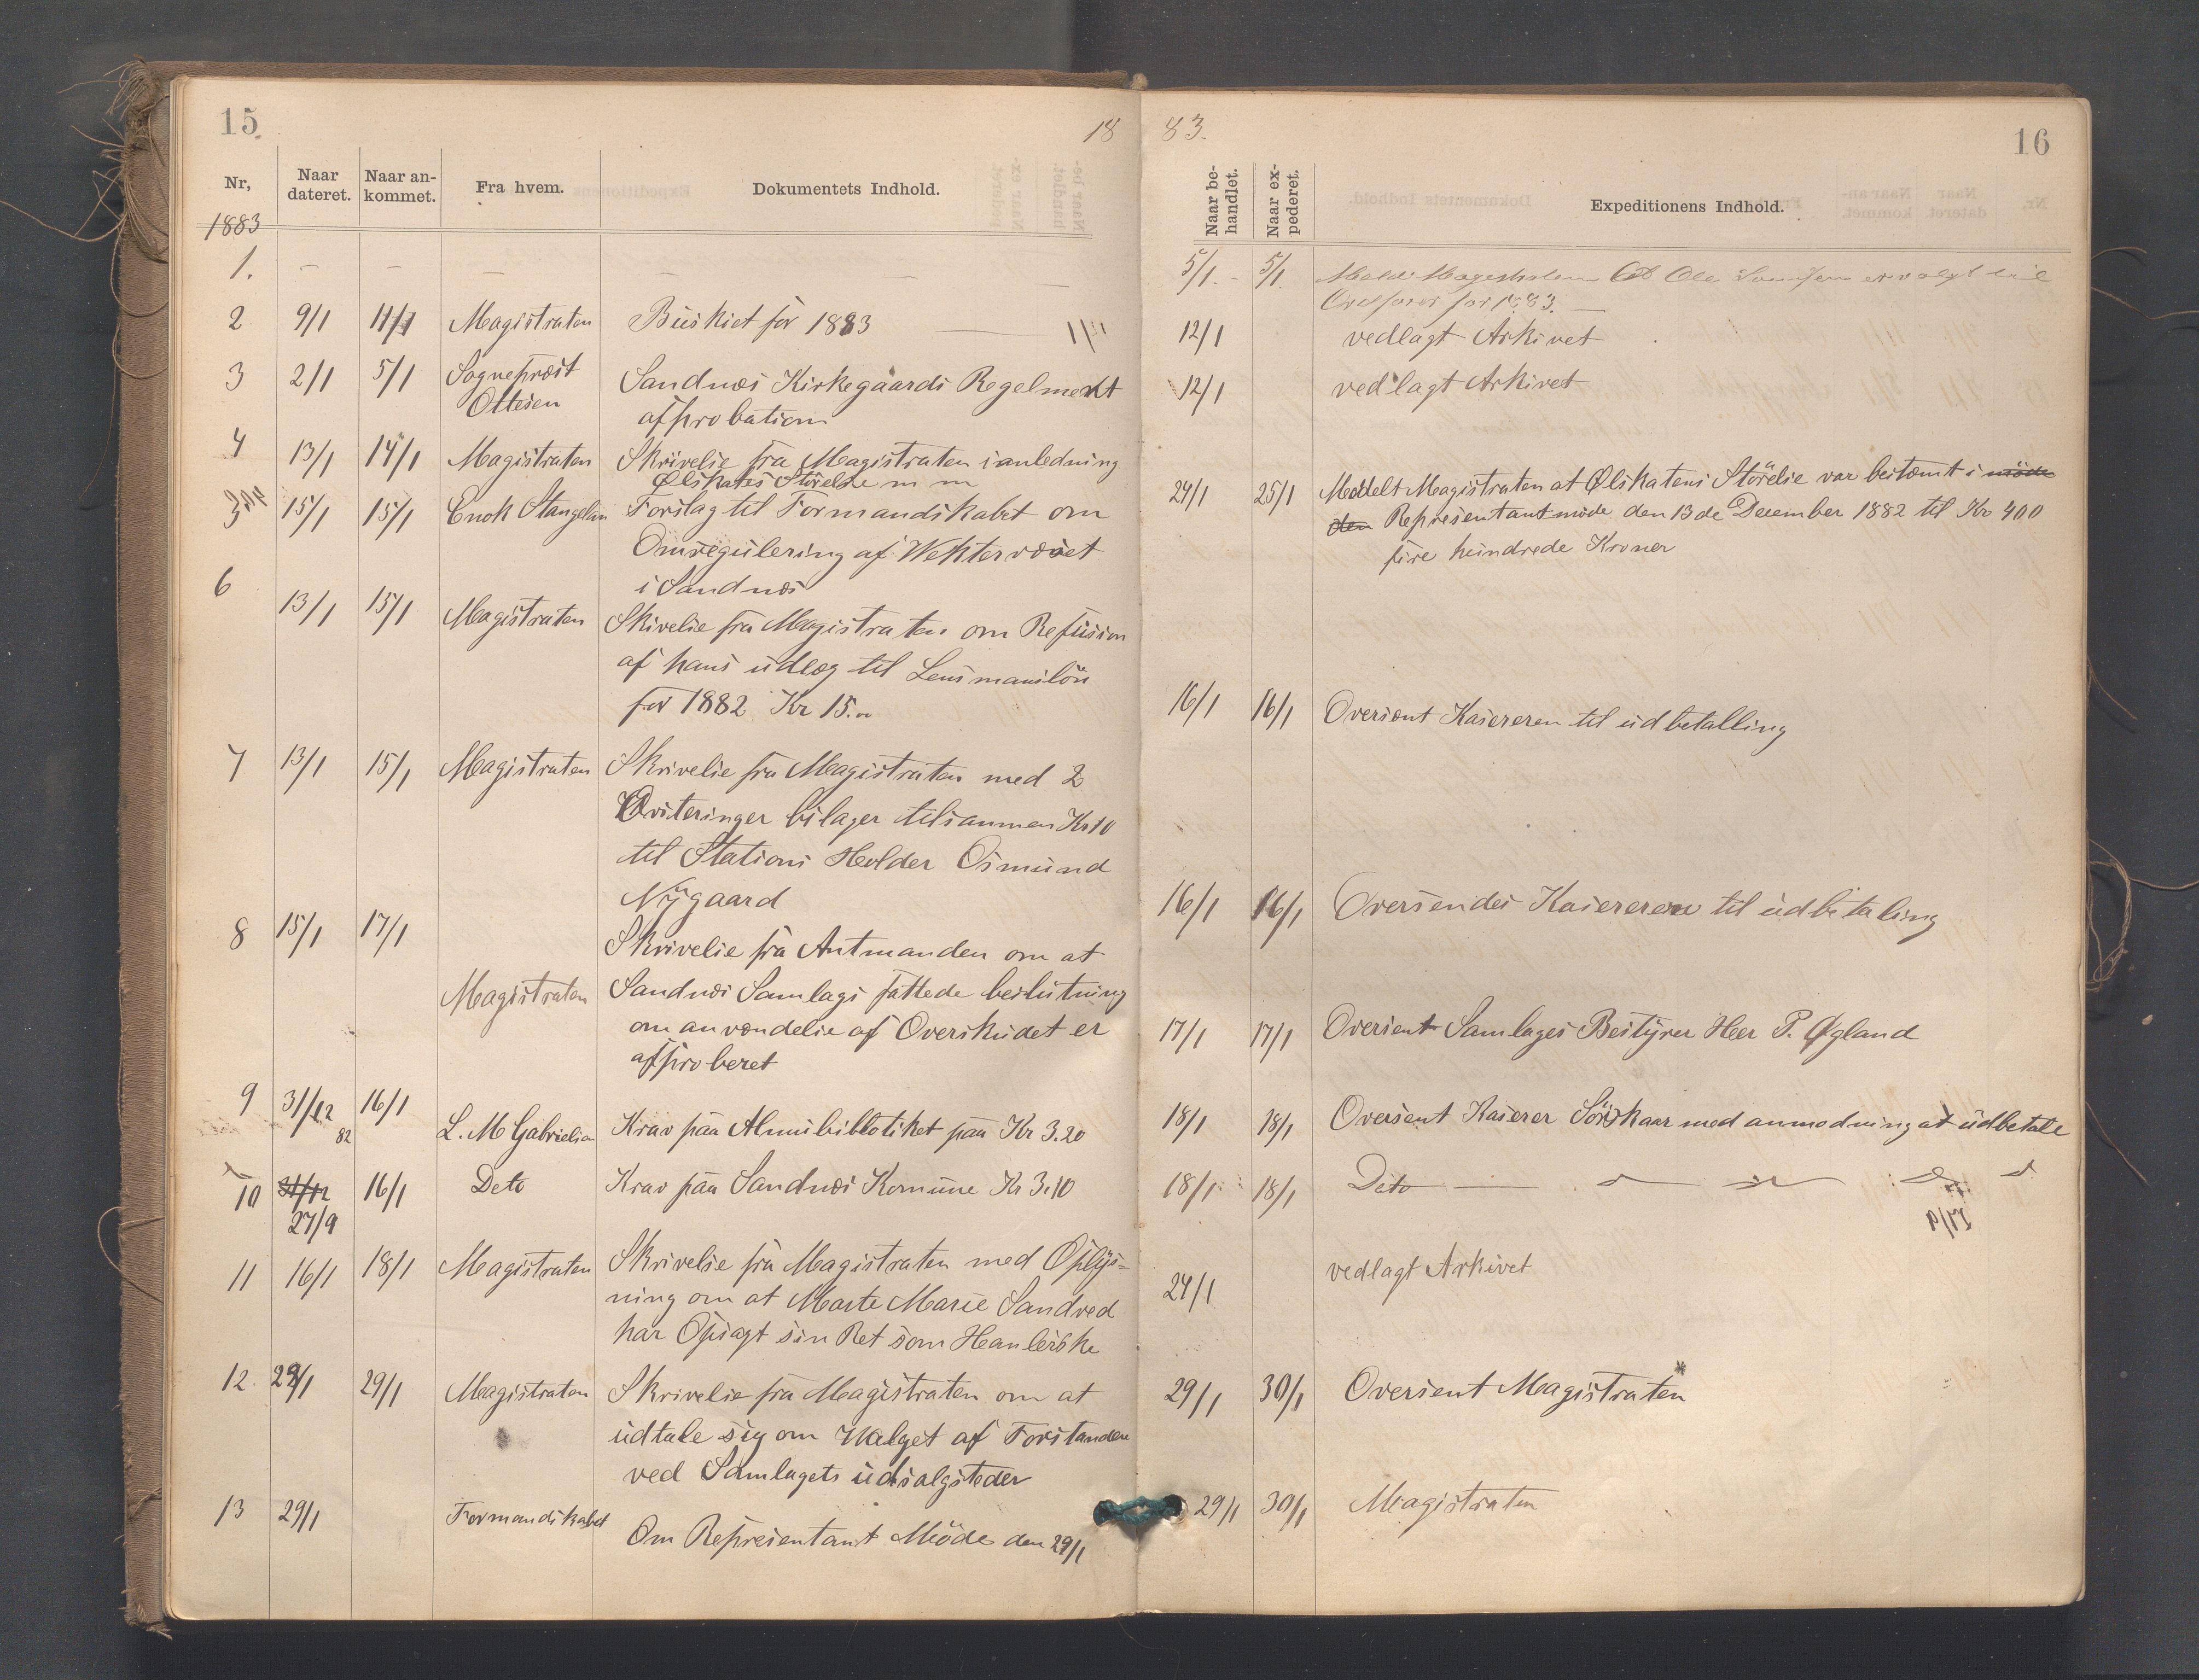 15
18
Nr,
Naar dateret.
Naar an-
kommet.
Fra hvem.
Dokumentets Indhold.
1883
1. — — — — — —
2 9/1 11/1 Magistraten Budskiet for 1883 —
3 2/1 5/1 Sognepræst Sandnæs Kirkegaards Regelment
Ottesen approbation
4 13/1 14/1 Magistraten Skrivelse fra Magistraten i anledning
Ølskates Störelse m m
15/1 15/1 Enok Stangelan Forslag til Formandskabet om
Omregulering af Wektervæset
i Sandnæs
6 13/1 15/1 Magistraten Skivelse fra Magistraten om Refusion
af hans udlæg til Lensmanslön
for 1882 Kr 15.00
7 13/1 15/1 Magistraten Skrivelse fra Magistraten med 2
Qviteringer bilager tilsammen Kr 10
til Stations Holder Osmund
Nygaard
8 15/1 17/1 Skrivelse fra Amtmanden om at
Magistraten Sandnæs Samlags fattede beslutning
om anvændelse af Overskudet er
approberet
9 31/12 82 16/1 L. M Gabrielsen Krav paa Almubiblotiket paa Kr 3.20
10 31/12 16/1 Deto Krav paa Sandnæs Komune Kr 3.10
27/9
11 16/1 18/1 Magistraten Skrivelse fra Magistraten med Oplys-
ning om at Marte Marie Sandved
har Opsagt sin Ret som Hanlerske
12 29/1 29/1 Magistraten Skrivelse fra Magistraten om at
udtale sig om Walget af Forstandere
ved Samlagets udsalgsteder
13 29/1 Formandskabet Om Representant Möde den 29/1
83.
16
Naar be-
handlet.
Naar ex-
pederet.
Expeditionens Indhold.
5/1. - 5/1. at Ole er valgt til
Ordförer for 1883. —
12/1 vedlagt Arkivet
12/1 vedlagt Arkivet
24/1 25/1 Meddelt Magistraten at Ølskatens Störelse var bestæmt i möde
den Representantmöde den 13de December 1882 til Kr 400
fire hundrede Kroner
16/1 16/1 Oversænt Kasereren til udbetalling
16/1 16/1 Oversendes Kasereren til udbetaling
17/1 17/1 Oversent Samlages Bestyrer Herr P. Øgland
18/1 18/1 Oversent Kaserer Sörskaar med anmodning at udbetale
18/1 18/1 Deto —
24/1 vedlagt Arkivet
29/1 30/1 Oversent Magistraten
29/1 30/1 Magistraten